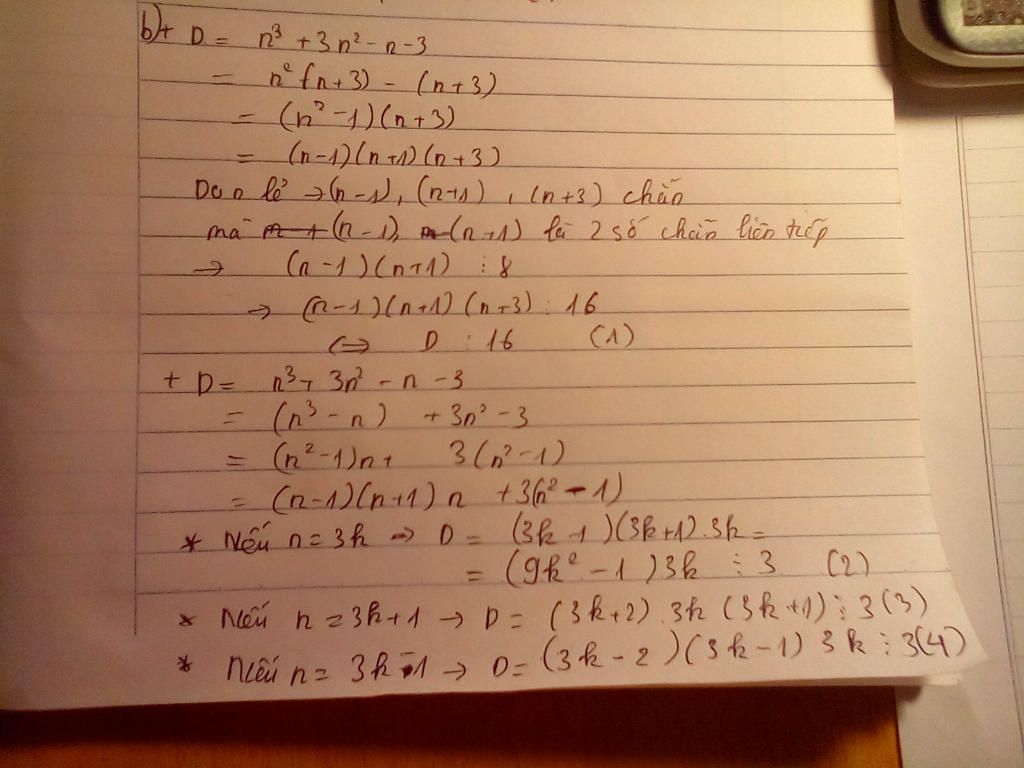 b) + D = n³ + 3n² - n - 3
= n² (n+3) - (n+3)
= (n² - 1)(n+3)
= (n-1)(n+1)(n+3)
Do n lẻ → (n-1), (n+1), (n+3) chẵn
mà (n-1), (n+1) là 2 số chẵn liên tiếp
→ (n-1)(n+1) ⋮ 8
→ (n-1)(n+1)(n+3) ⋮ 16
⇔ D ⋮ 16 (1)
+ D = n³ + 3n² - n - 3
= (n³ - n) + 3n² - 3
= (n² - 1)n + 3(n² - 1)
= (n-1)(n+1)n + 3(n² - 1)
* Nếu n = 3k → D = (3k-1)(3k+1).3k =
= (9k² - 1)3k ⋮ 3 (2)
* Nếu n = 3k+1 → D = (3k+2).3k(3k+1) ⋮ 3 (3)
* Nếu n = 3k-1 → D = (3k-2)(3k-1)3k ⋮ 3 (4)